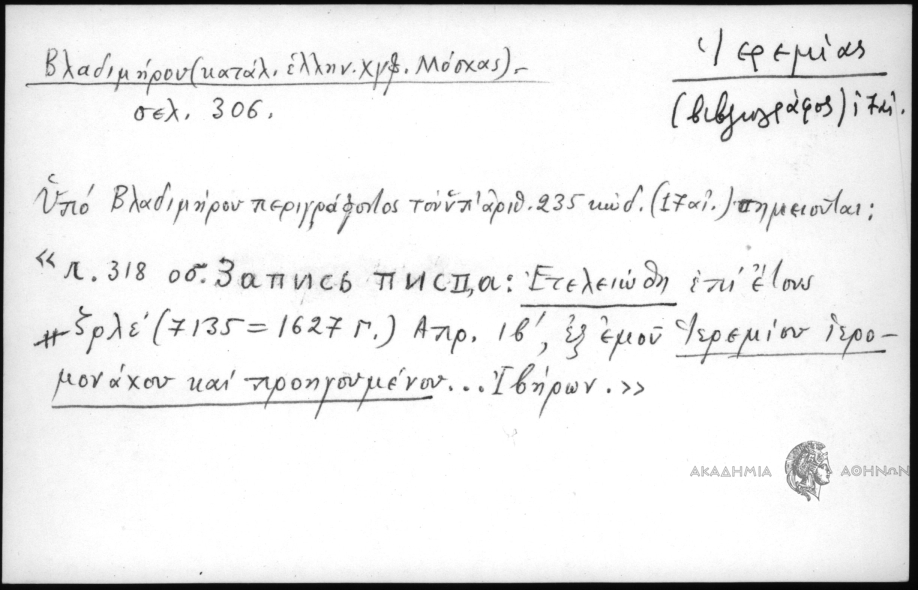 Βλαδιμήρου (κατάλ. ἑλλην. χγφ. Μόσχας).-
σελ. 306.
Ἱερεμίας
(βιβλιογράφος) 17 αἰ.
Ὑπό Βλαδιμήρου περιγράφοντος τόν ὑπ' ἀριθ. 235 κώδ. (17 αἰ.) σημειοῦται:
«л. 318 об. Запись писца: Ἐτελειώθη ἐπί ἔτους
͵ζρλε´ (7135 = 1627 г.) Απρ. ιβ´, ἐξ ἐμοῦ Ἱερεμίου ἱερο-
μονάχου καί προηγουμένου... Ἰβήρων.»
ΑΚΑΔΗΜΙΑ ΑΘΗΝΩΝ